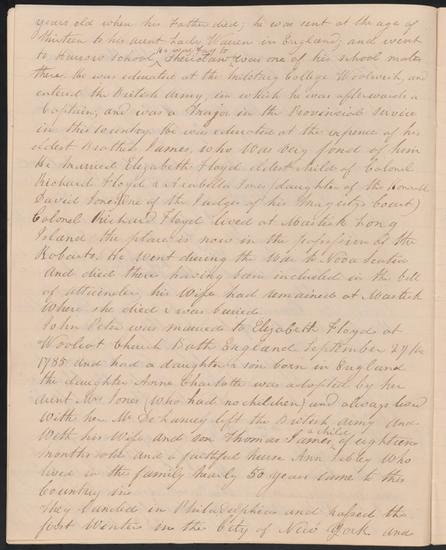 years old when his Father died; he was sent at the age of
thirteen to his aunt Lady Warren in England; and went
to Harrow School, he was fag to Sheridan, was one of his school mates
there. he was educated at the Military College Woolwich, and
entered the British Army, in which he was afterwards a
Captain, and was a Major in the Provincial Service
in this Country. He was educated at the expense of his
eldest Brother James, who was very fond of him
He Married Elizabeth Floyd eldest child of Colonel
Richard Floyd & Arabella Jones (daughter of the Honorable
David Jones One of the Judges of his Majestys Court)
Colonel Richard Floyd lived at Mastick Long
Island the place is now in the possession of the
Roberts. He went during the War to Nova Scotia
and died there having been included in the bill
of attainder, his Wife had remained at Mastick
where she died & was buried.
John Peter was married to Elizabeth Floyd at
Woolcot Church Bath England September 29th
1785 and had a daughter & son born in England
the daughter Anne Charlotte was adopted by her
aunt Mrs Jones (who had no children) and always lived
with her Mr De Lancey left the British Army and
with his Wife and son Thomas James a child of eighteen
months old and a faithful nurse Ann who
lived in the family nearly 50 years came to this
Country in
They landed in Philadelphia and passed the
first Winter in the City of New York and